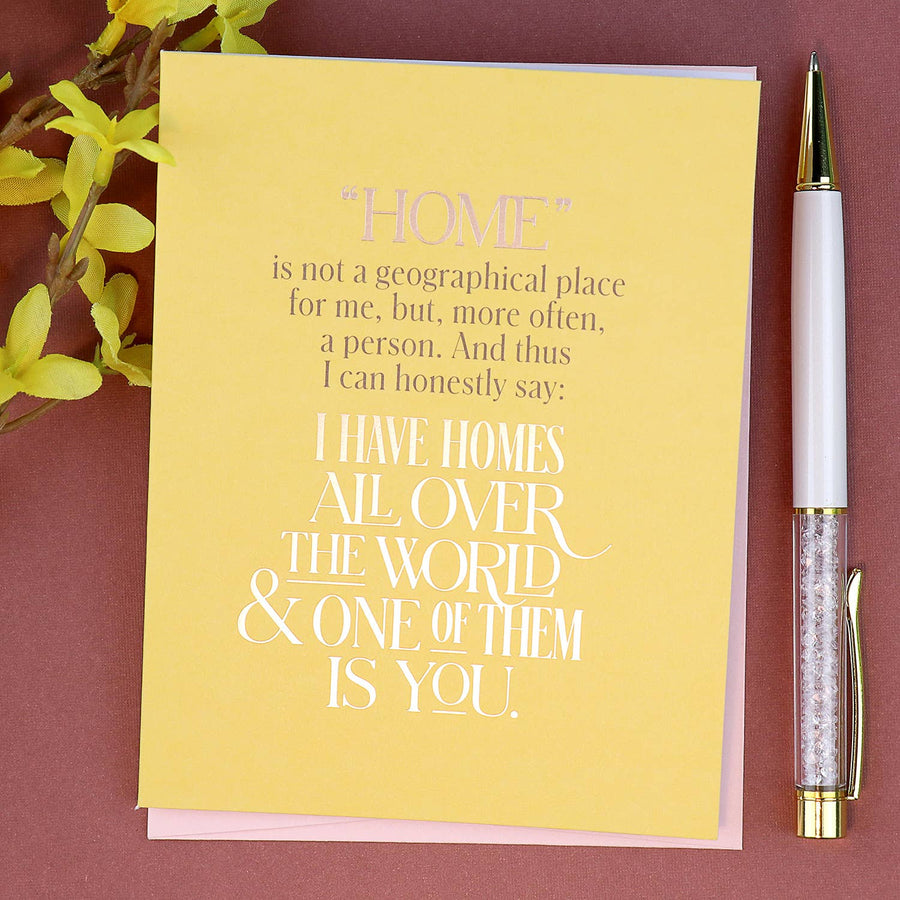 “HOME”
is not a geographical place
for me, but, more often,
a person. And thus
I can honestly say:
I HAVE HOMES
ALL OVER
THE WORLD
& ONE OF THEM
IS YOU.